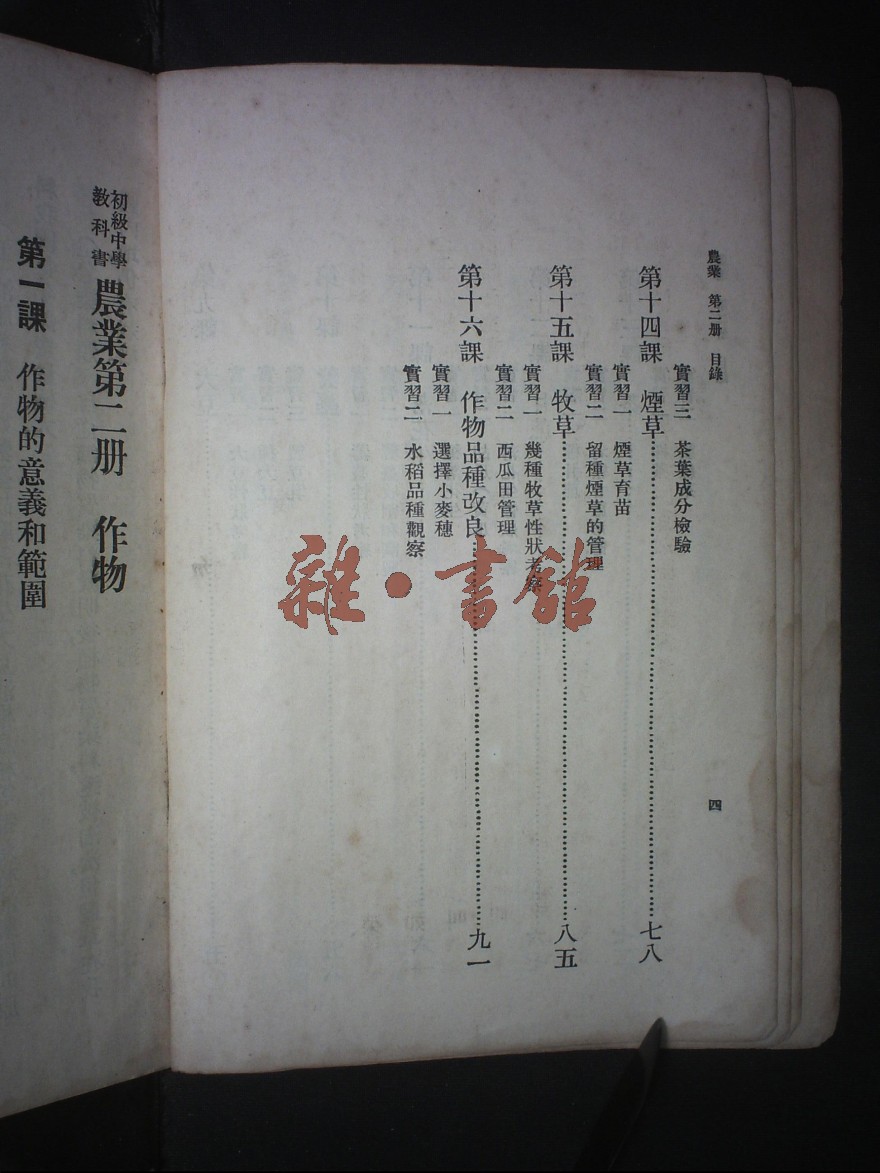 農業 第二册 目錄
四
實習三 茶葉成分檢驗
第十四課 煙草……七八
實習一 煙草育苗
實習二 留種煙草的管理
第十五課 牧草……八五
實習一 幾種牧草性狀考察
實習二 西瓜田管理
第十六課 作物品種改良……九一
實習一 選擇小麥穗
實習二 水稻品種觀察
初級中學
教科書
農業第二册 作物
第一課 作物的意義和範圍
雜·書館